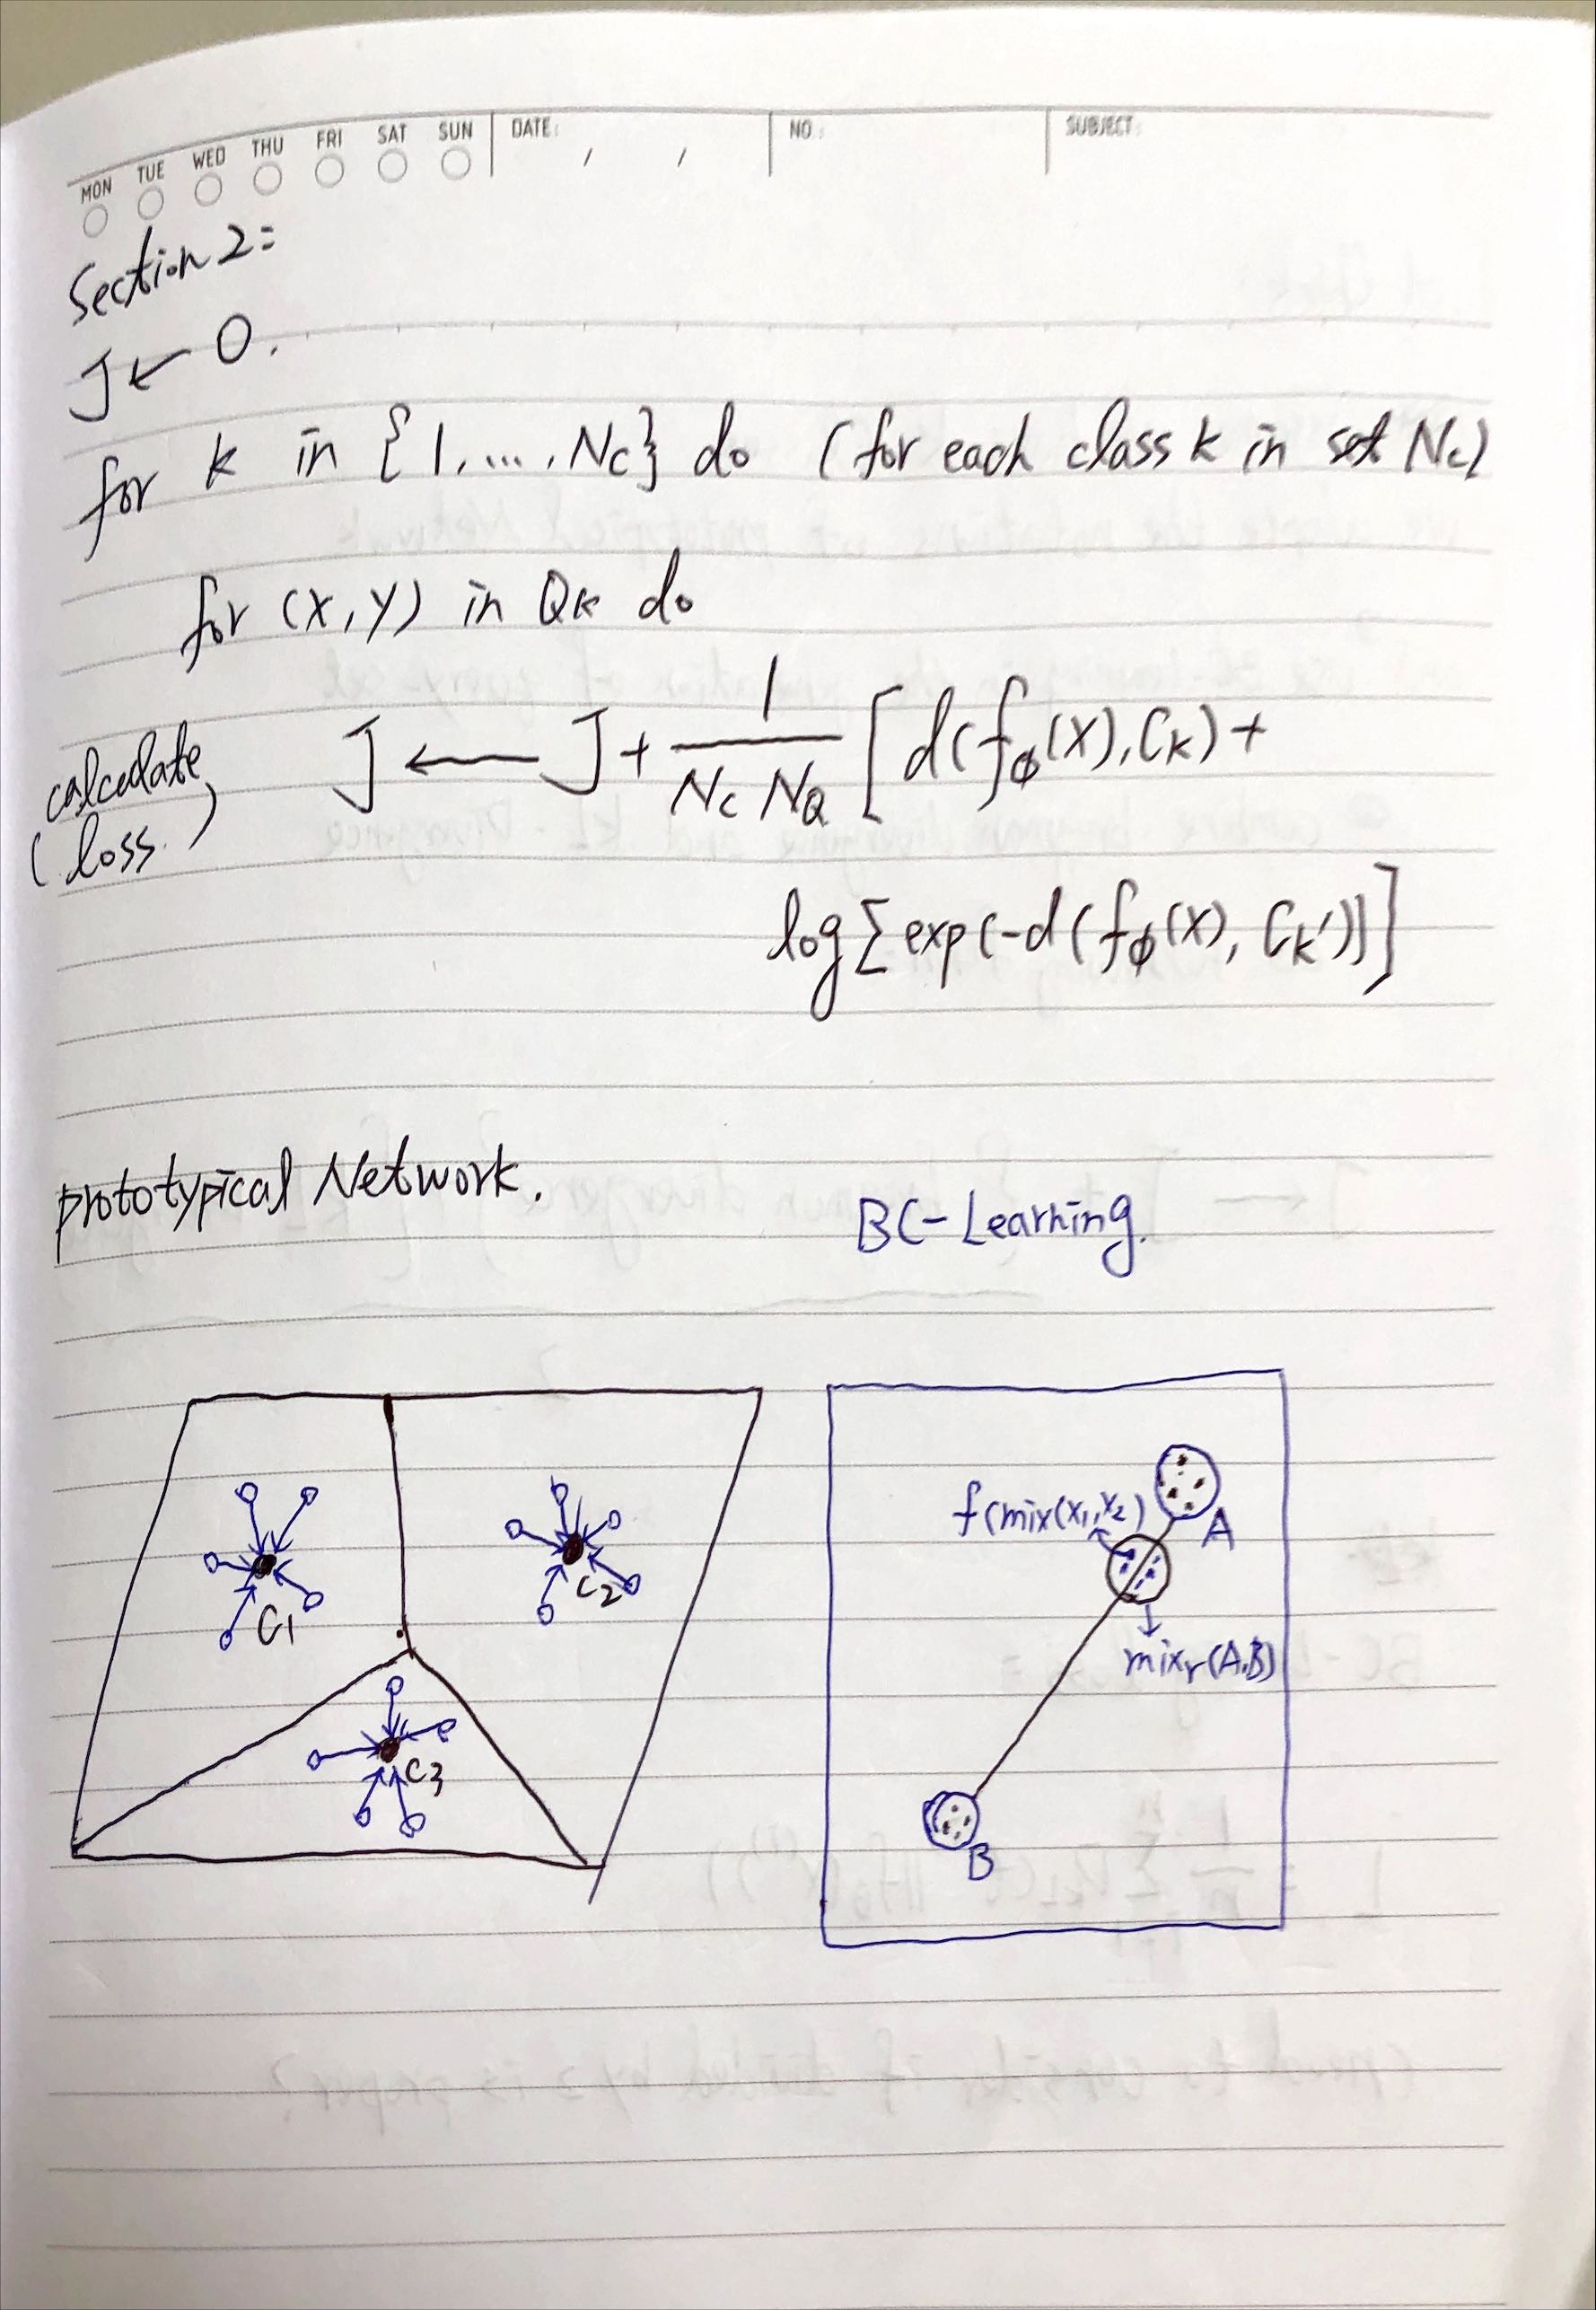 MON TUE WED THU FRI SAT SUN DATE: / / NO: SUBJECT:
Section 2:
J ← 0.
for k in {1, ..., Nc} do (for each class k in set Nc)
for (x, y) in Qk do
calculate
(loss.)
J ← J + 1/(Nc NQ) [d(fϕ(x), Ck) +
log Σ exp(-d(fϕ(x), Ck'))]
prototypical Network.
BC-Learning.
C1
C2
C3
f(mix(x1, x2)
A
mixr(A,B)
B